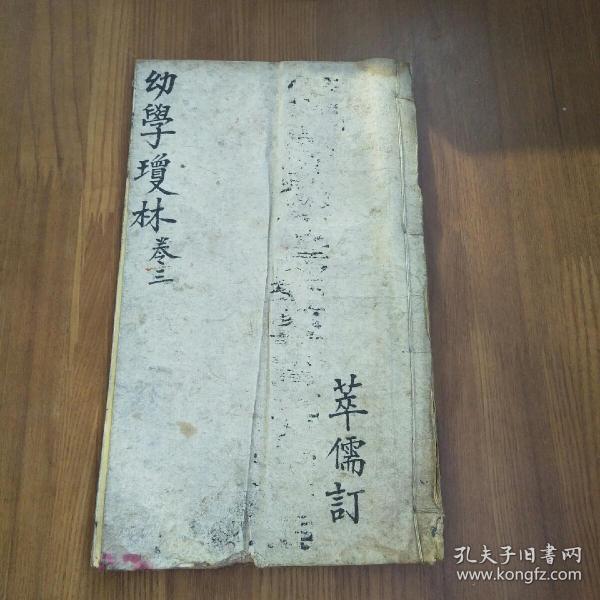 幼學瓊林
卷三
萃儒訂
孔夫子旧書网
www.kongfz.com